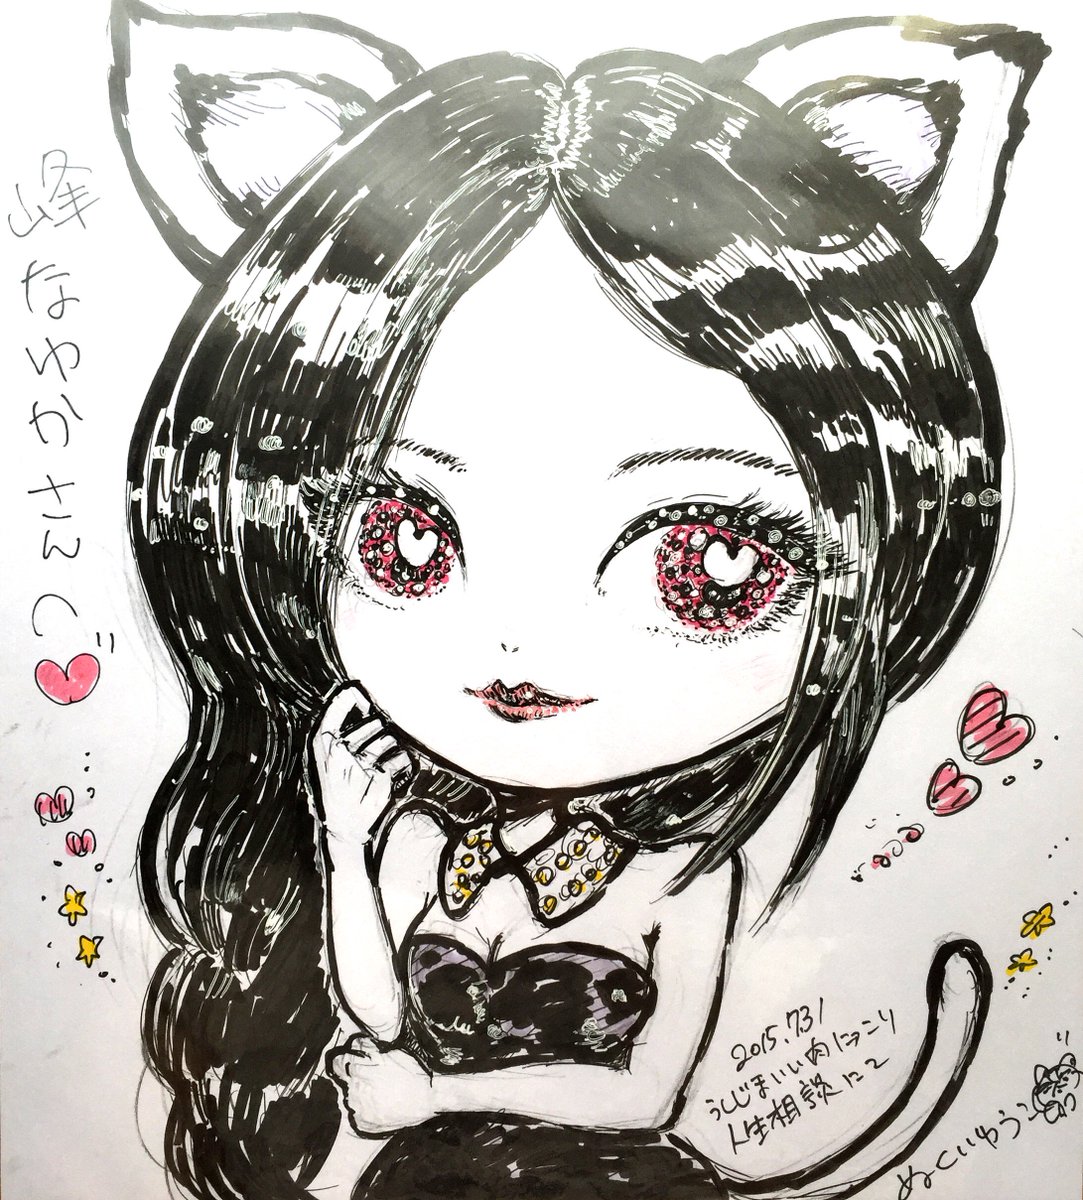 峰なゆかさんへ
2015.7.31
うしじまいい肉にっこり
人生相談にて
ぬくいゆう